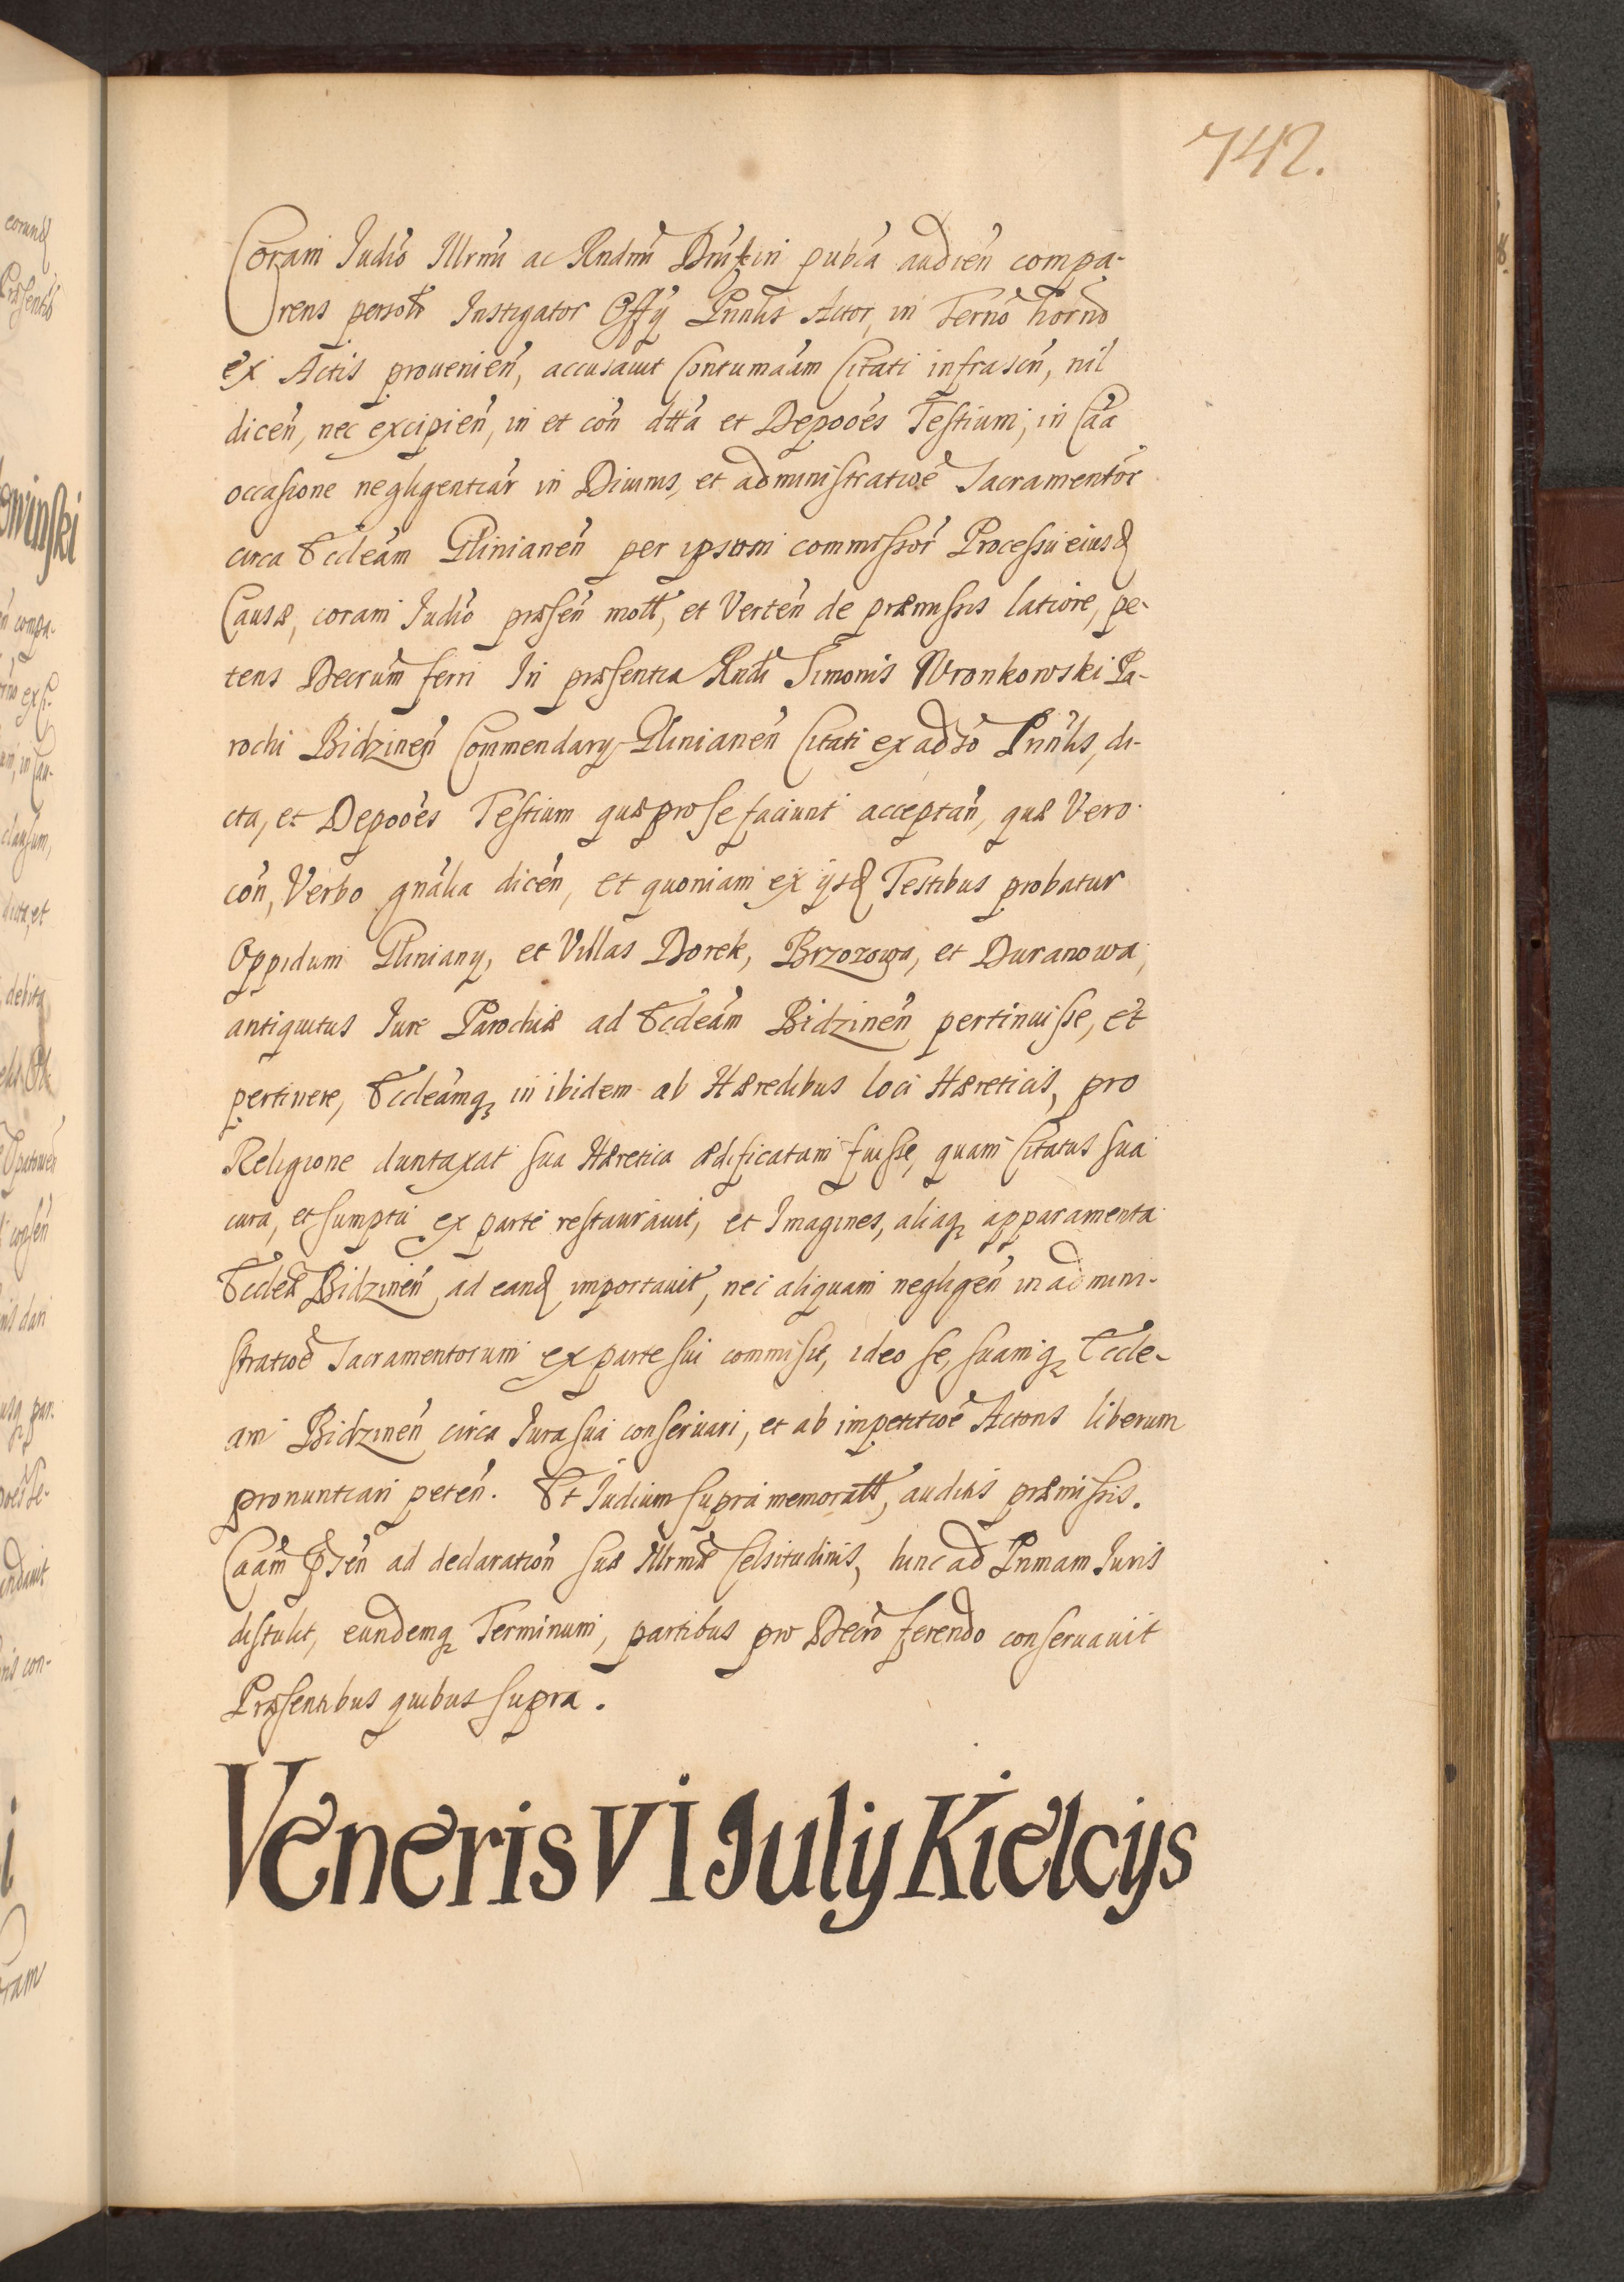 742.
Coram Judio Illrmi ac Rndmi Dni in publca audien compa-
rens persolr Instigator Offij Pnnlis Actor, in Termo horno
ex Actis provenien, accusavit Contumaam Citati infrascn, nil
dicen, nec excipien, in et con dtta et Depooes Testium, in Caa
occasione negligentiar in Divinis, et administratioe Sacramentor
circa Eccleam Glinianen per ipsum commissor Processu eiusd
Causæ, coram Judio præsen mott, et Verten de præmissis latiore, pe-
tens Decrum ferri In præsentia Rndi Simonis Wronkowski Pa-
rochi Bidzinen Commendarij Glinianen Citati ex adso Pnnlis, di-
cta, et Depooes Testium quæ pro se faciunt acceptan, quæ Vero
con, Verbo gnalia dicen, et quoniam ex ijsd Testibus probatur
Oppidum Gliniany, et Villas Dorek, Brzozowa, et Duranowa,
antiquitus Jure Parochiæ ad Eccleam Bidzinen pertinuisse, et
pertinere, Eccleamq in ibidem ab Hæredibus loci Hæreticis, pro
Religione duntaxat sua Hæretica ædificatam fuisse, quam Citatus sua
cura, et sumptu ex parte restauravit, et Imagines, aliaq apparamenta
Eccleæ Bidzinen ad eand importavit, nec aliquam negligen in admini-
stratioe Sacramentorum ex parte sui commisit, ideo se, suamq Eccle-
am Bidzinen circa Jura sua conservari, et ab impetitioe Actoris liberum
pronuntiari peten. Et Judium supra memoratt, auditis præmissis.
Caam Psen ad declaration suæ Illrmæ Celsitudinis, hinc ad Primam Juris
distulit, eundemq Terminum, partibus pro Decro ferendo conservavit
Præsentibus quibus supra.
Veneris VI Julij Kielcijs